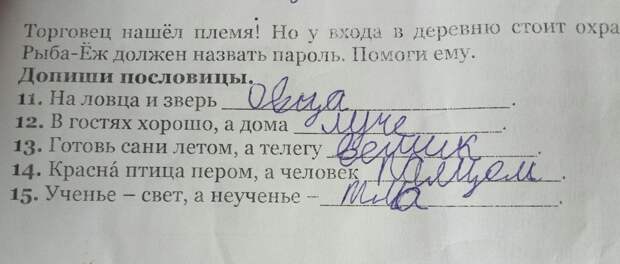 Торговец нашёл племя! Но у входа в деревню стоит охра
Рыба-Ёж должен назвать пароль. Помоги ему.
Допиши пословицы.
11. На ловца и зверь Овца.
12. В гостях хорошо, а дома луче.
13. Готовь сани летом, а телегу
14. Краснá птица пером, а человек палцем.
15. Ученье – свет, а неученье – тма.